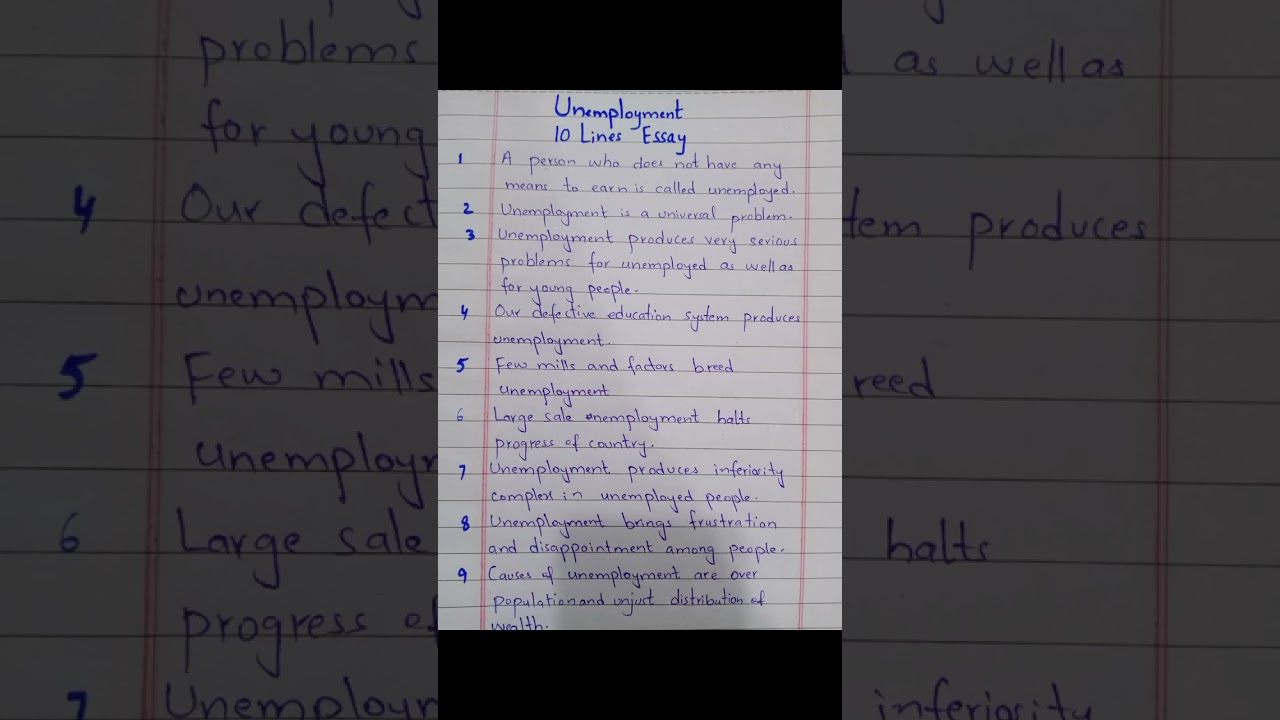 Unemployment
10 Lines Essay
1 A person who does not have any
means to earn is called unemployed.
2 Unemployment is a univeral problem.
3 Unemployment produces very serious
problems for unemployed as well as
for young people.
4 Our defective education system produces
unemployment.
5 Few mills and factors breed
unemployment
6 Large sale enemployment halts
progress of country.
7 Unemployment produces inferiority
complex in unemployed people.
8 Unemployment brings frustration
and disappointment among people.
9 Causes of unemployment are over
population and unjust distribution of
wealth.